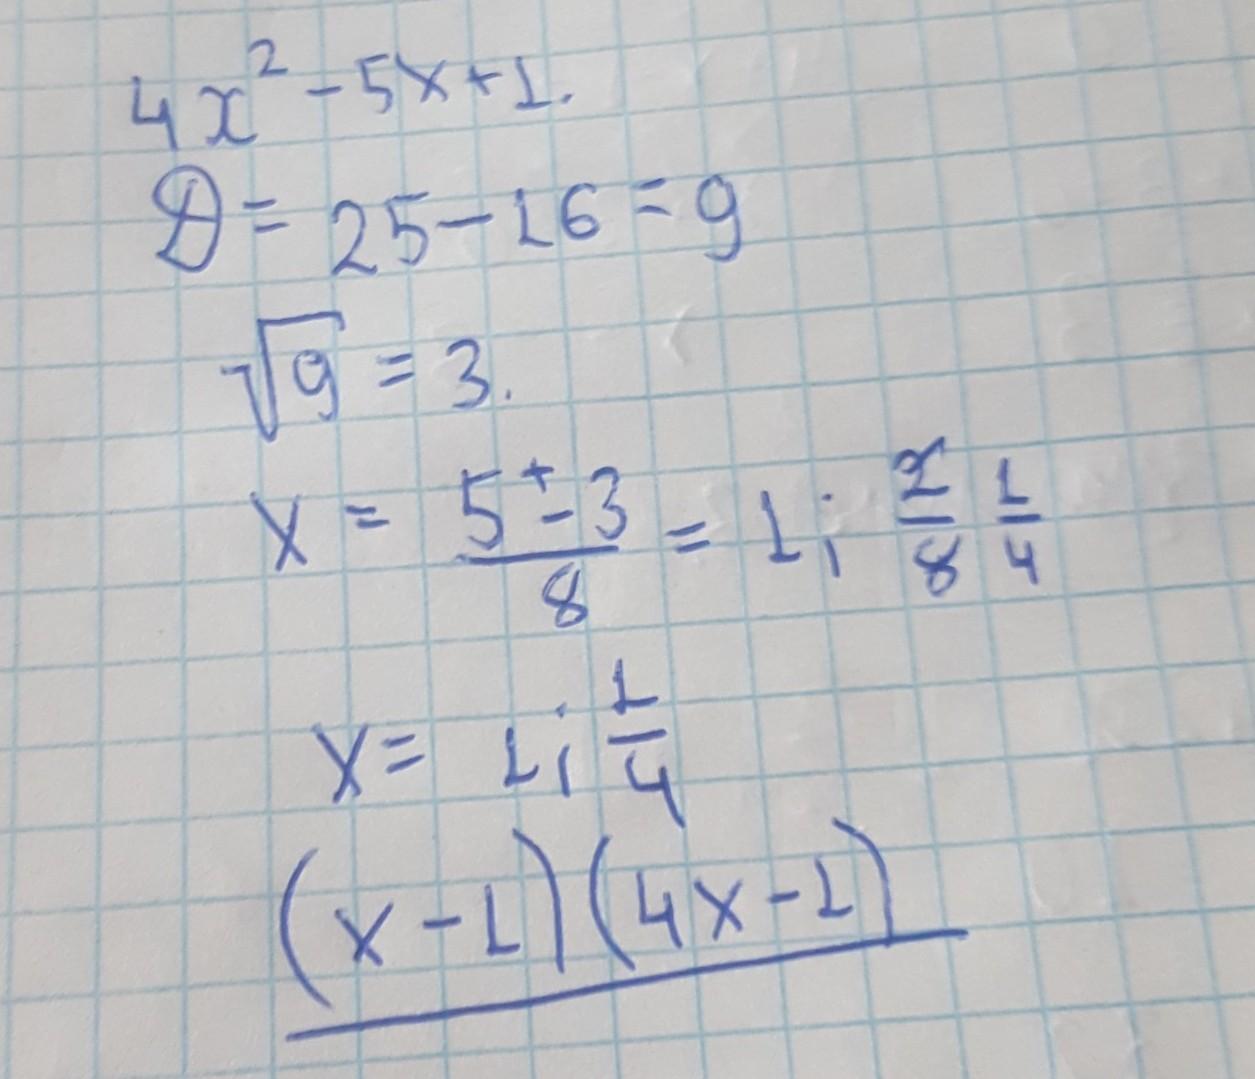 4x² - 5x + 1.
D = 25 - 16 = 9
√9 = 3.
x = (5 ± 3)/8 = 1; 2/8 1/4
x = 1; 1/4
(x - 1)(4x - 1)